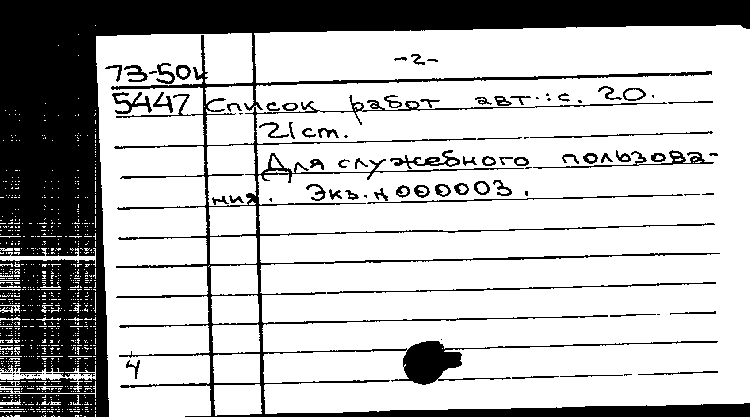 -2-
73-50к
5447 Список работ авт.: с. 20.
21 ст.
Для служебного пользова-
ния. Экз. н 000003.
4